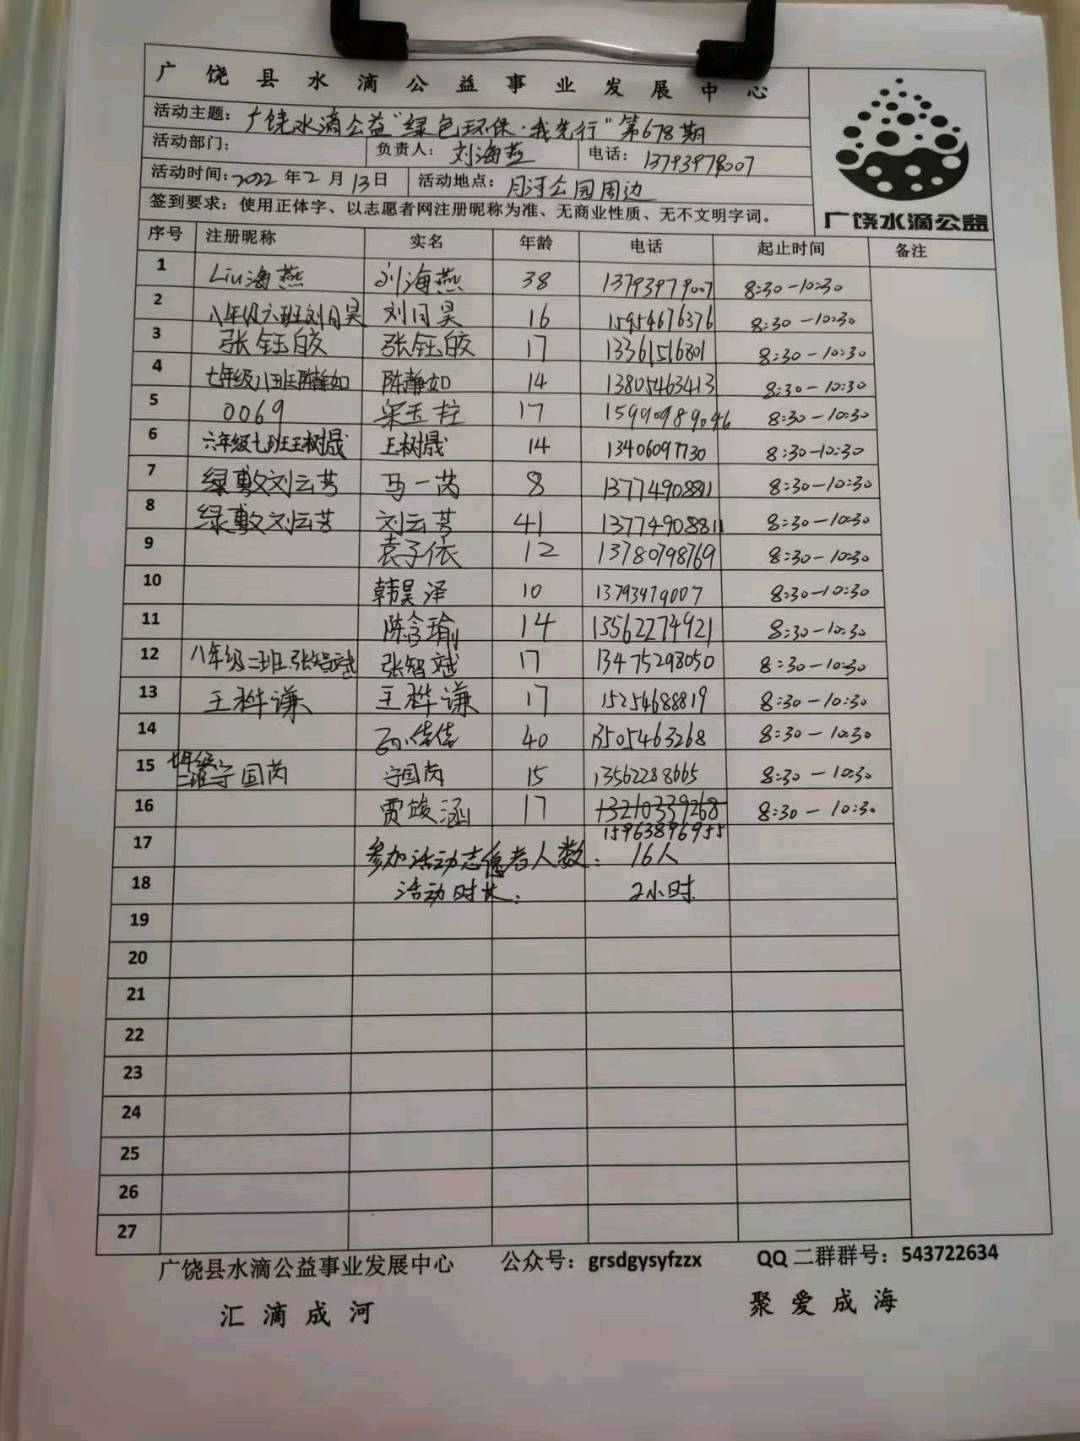 广饶县水滴公益事业发展中心
活动主题：广饶水滴公益"绿色环保·我先行"第678期
活动部门： 负责人：刘海燕 电话：13793978007
活动时间：2022年2月13日 活动地点：月河公园周边
签到要求：使用正体字、以志愿者网注册昵称为准、无商业性质、无不文明字词。
广饶水滴公益
序号 注册昵称 实名 年龄 电话 起止时间 备注
1 Liu海燕 刘海燕 38 13793979007 8:30-10:30
2 八年级六班刘月昊 刘月昊 16 15954676376 8:30-10:30
3 张钰皎 张钰皎 17 13361516801 8:30-10:30
4 七年级八班陈静如 陈静如 14 13805463413 8:30-10:30
5 0069 宋玉柱 17 15990989046 8:30-10:30
6 六年级七班王树晟 王树晟 14 13406097730 8:30-10:30
7 绿敷刘云芳 马一芮 8 13774908811 8:30-10:30
8 绿敷刘云芳 刘云芳 41 13774908811 8:30-10:30
9 袁子依 12 13780798769 8:30-10:30
10 韩昊泽 10 13793479007 8:30-10:30
11 陈含瑜 14 13562274921 8:30-10:30
12 八年级二班张智斌 张智斌 17 13475298050 8:30-10:30
13 王桦谦 王桦谦 17 15254688819 8:30-10:30
14 佳佳 40 13505463268 8:30-10:30
15 国芮 国芮 15 13562288665 8:30-10:30
16 贾竣涵 17 13210339268 8:30-10:30
15963896955
17 参加活动志愿者人数：16人
18 活动时长：2小时
19
20
21
22
23
24
25
26
27
广饶县水滴公益事业发展中心 公众号：grsdgysyfzzx QQ二群群号：543722634
汇滴成河 聚爱成海